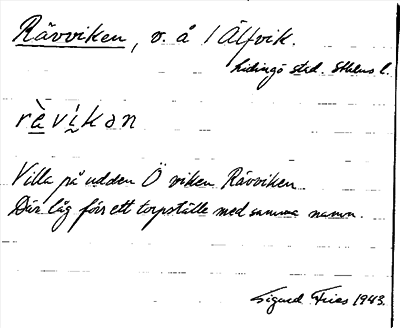 Rävviken, v. å / Älfvik.
Lidingö stad. Sthlms l.
rävikən
Villa på udden Ö viken Rävviken
Där låg förr ett torpställe med samma namn.
Sigurd Fries 1943.